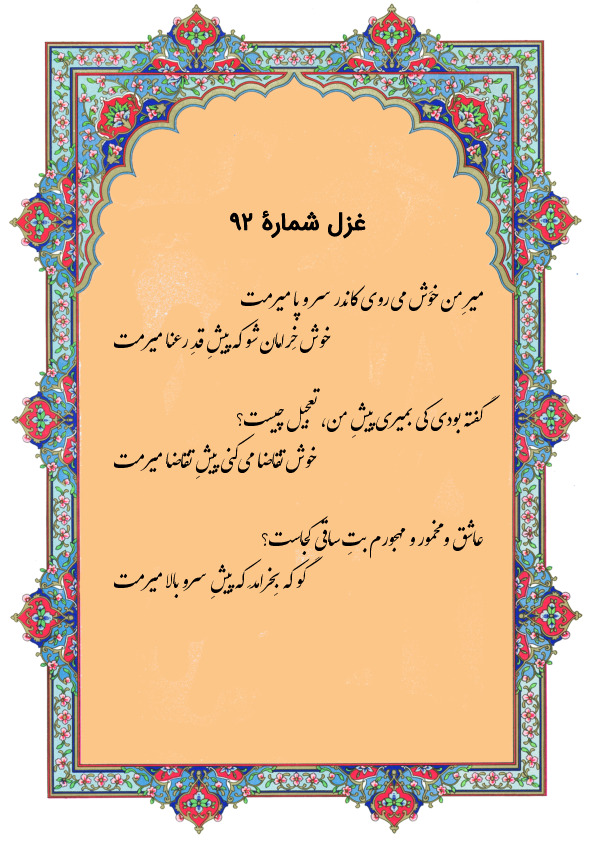 غزل شمارهٔ ۹۲
میرِ من خوش می روی کاندر سر و پا میرمت
خوش خرامان شو که پیشِ قدِ رعنا میرمت
گفته بودی کی بمیری پیشِ من، تعجیل چیست؟
خوش تقاضا می کنی پیشِ تقاضا میرمت
عاشق و مخمور و مهجورم بتِ ساقی کجاست؟
گو که بِخرامد که پیشِ سرو بالا میرمت